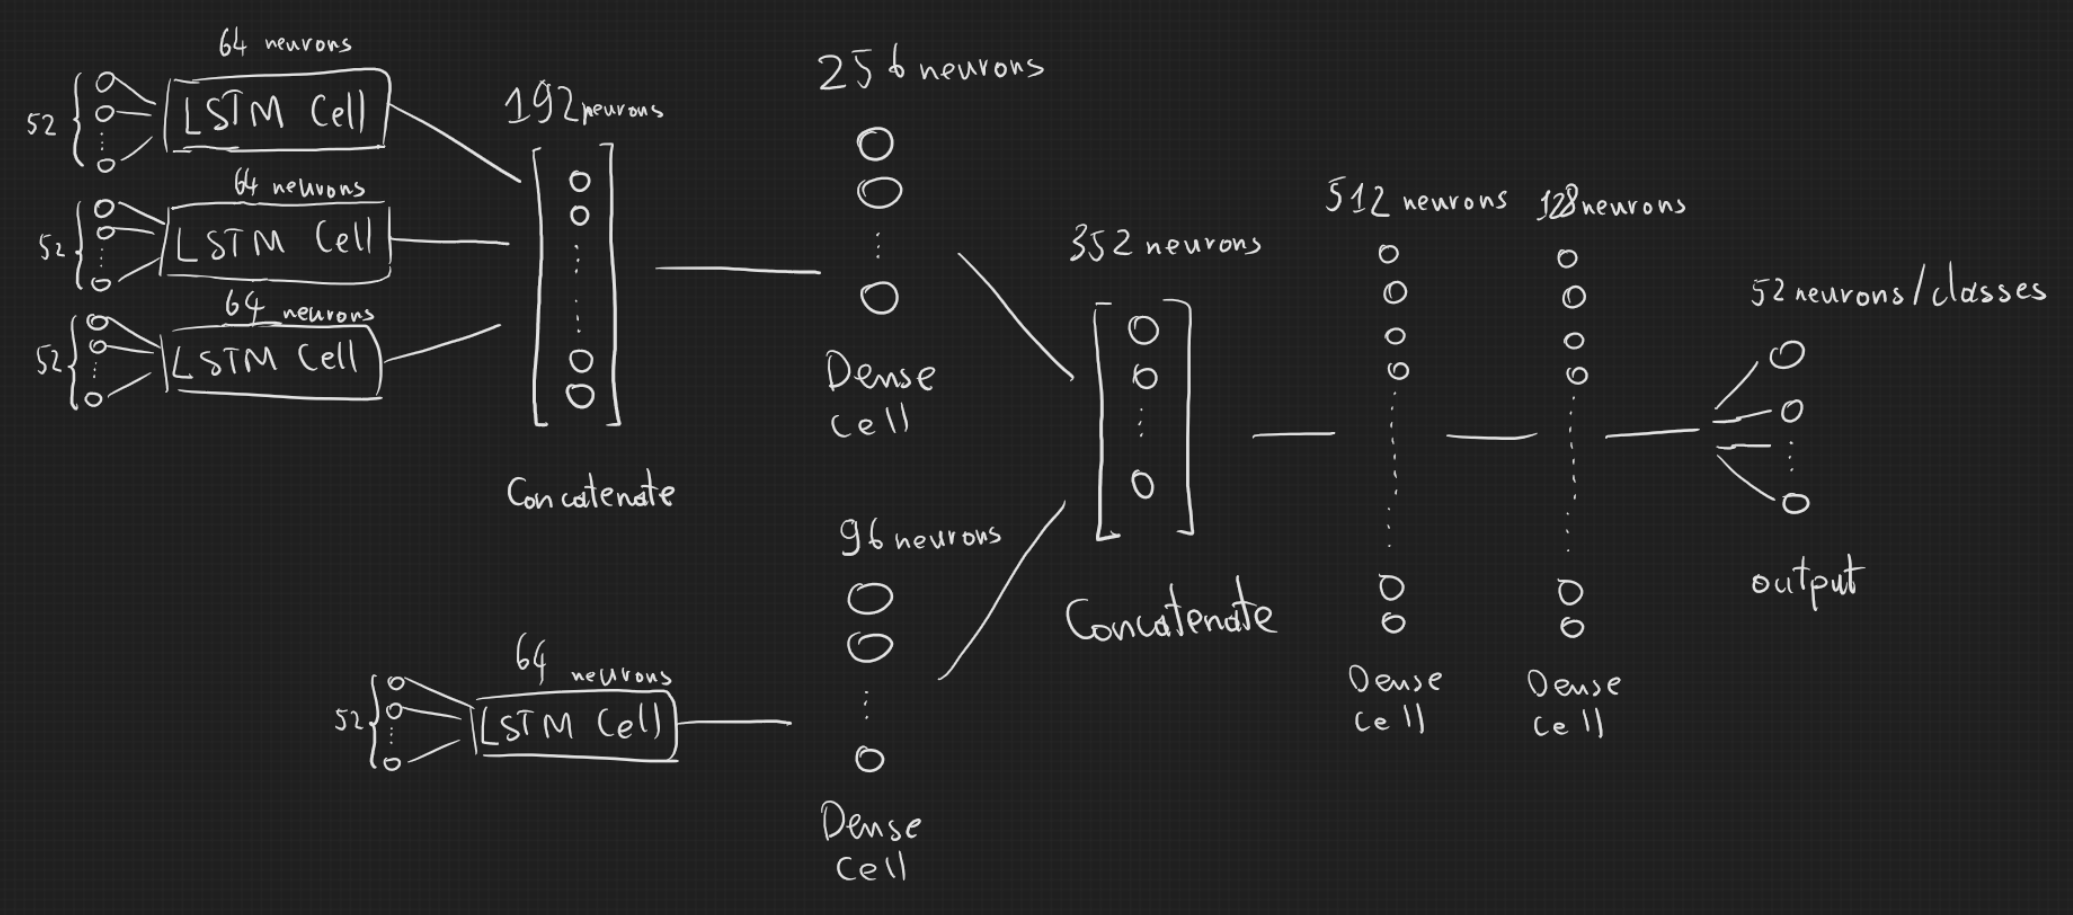 64 neurons
52
LSTM Cell
64 neurons
52
LSTM Cell
64 neurons
52
LSTM Cell
192 neurons
Concatenate
256 neurons
Dense
Cell
64 neurons
52
LSTM Cell
96 neurons
Dense
Cell
352 neurons
Concatenate
512 neurons
Dense
Cell
128 neurons
Dense
Cell
52 neurons/classes
output